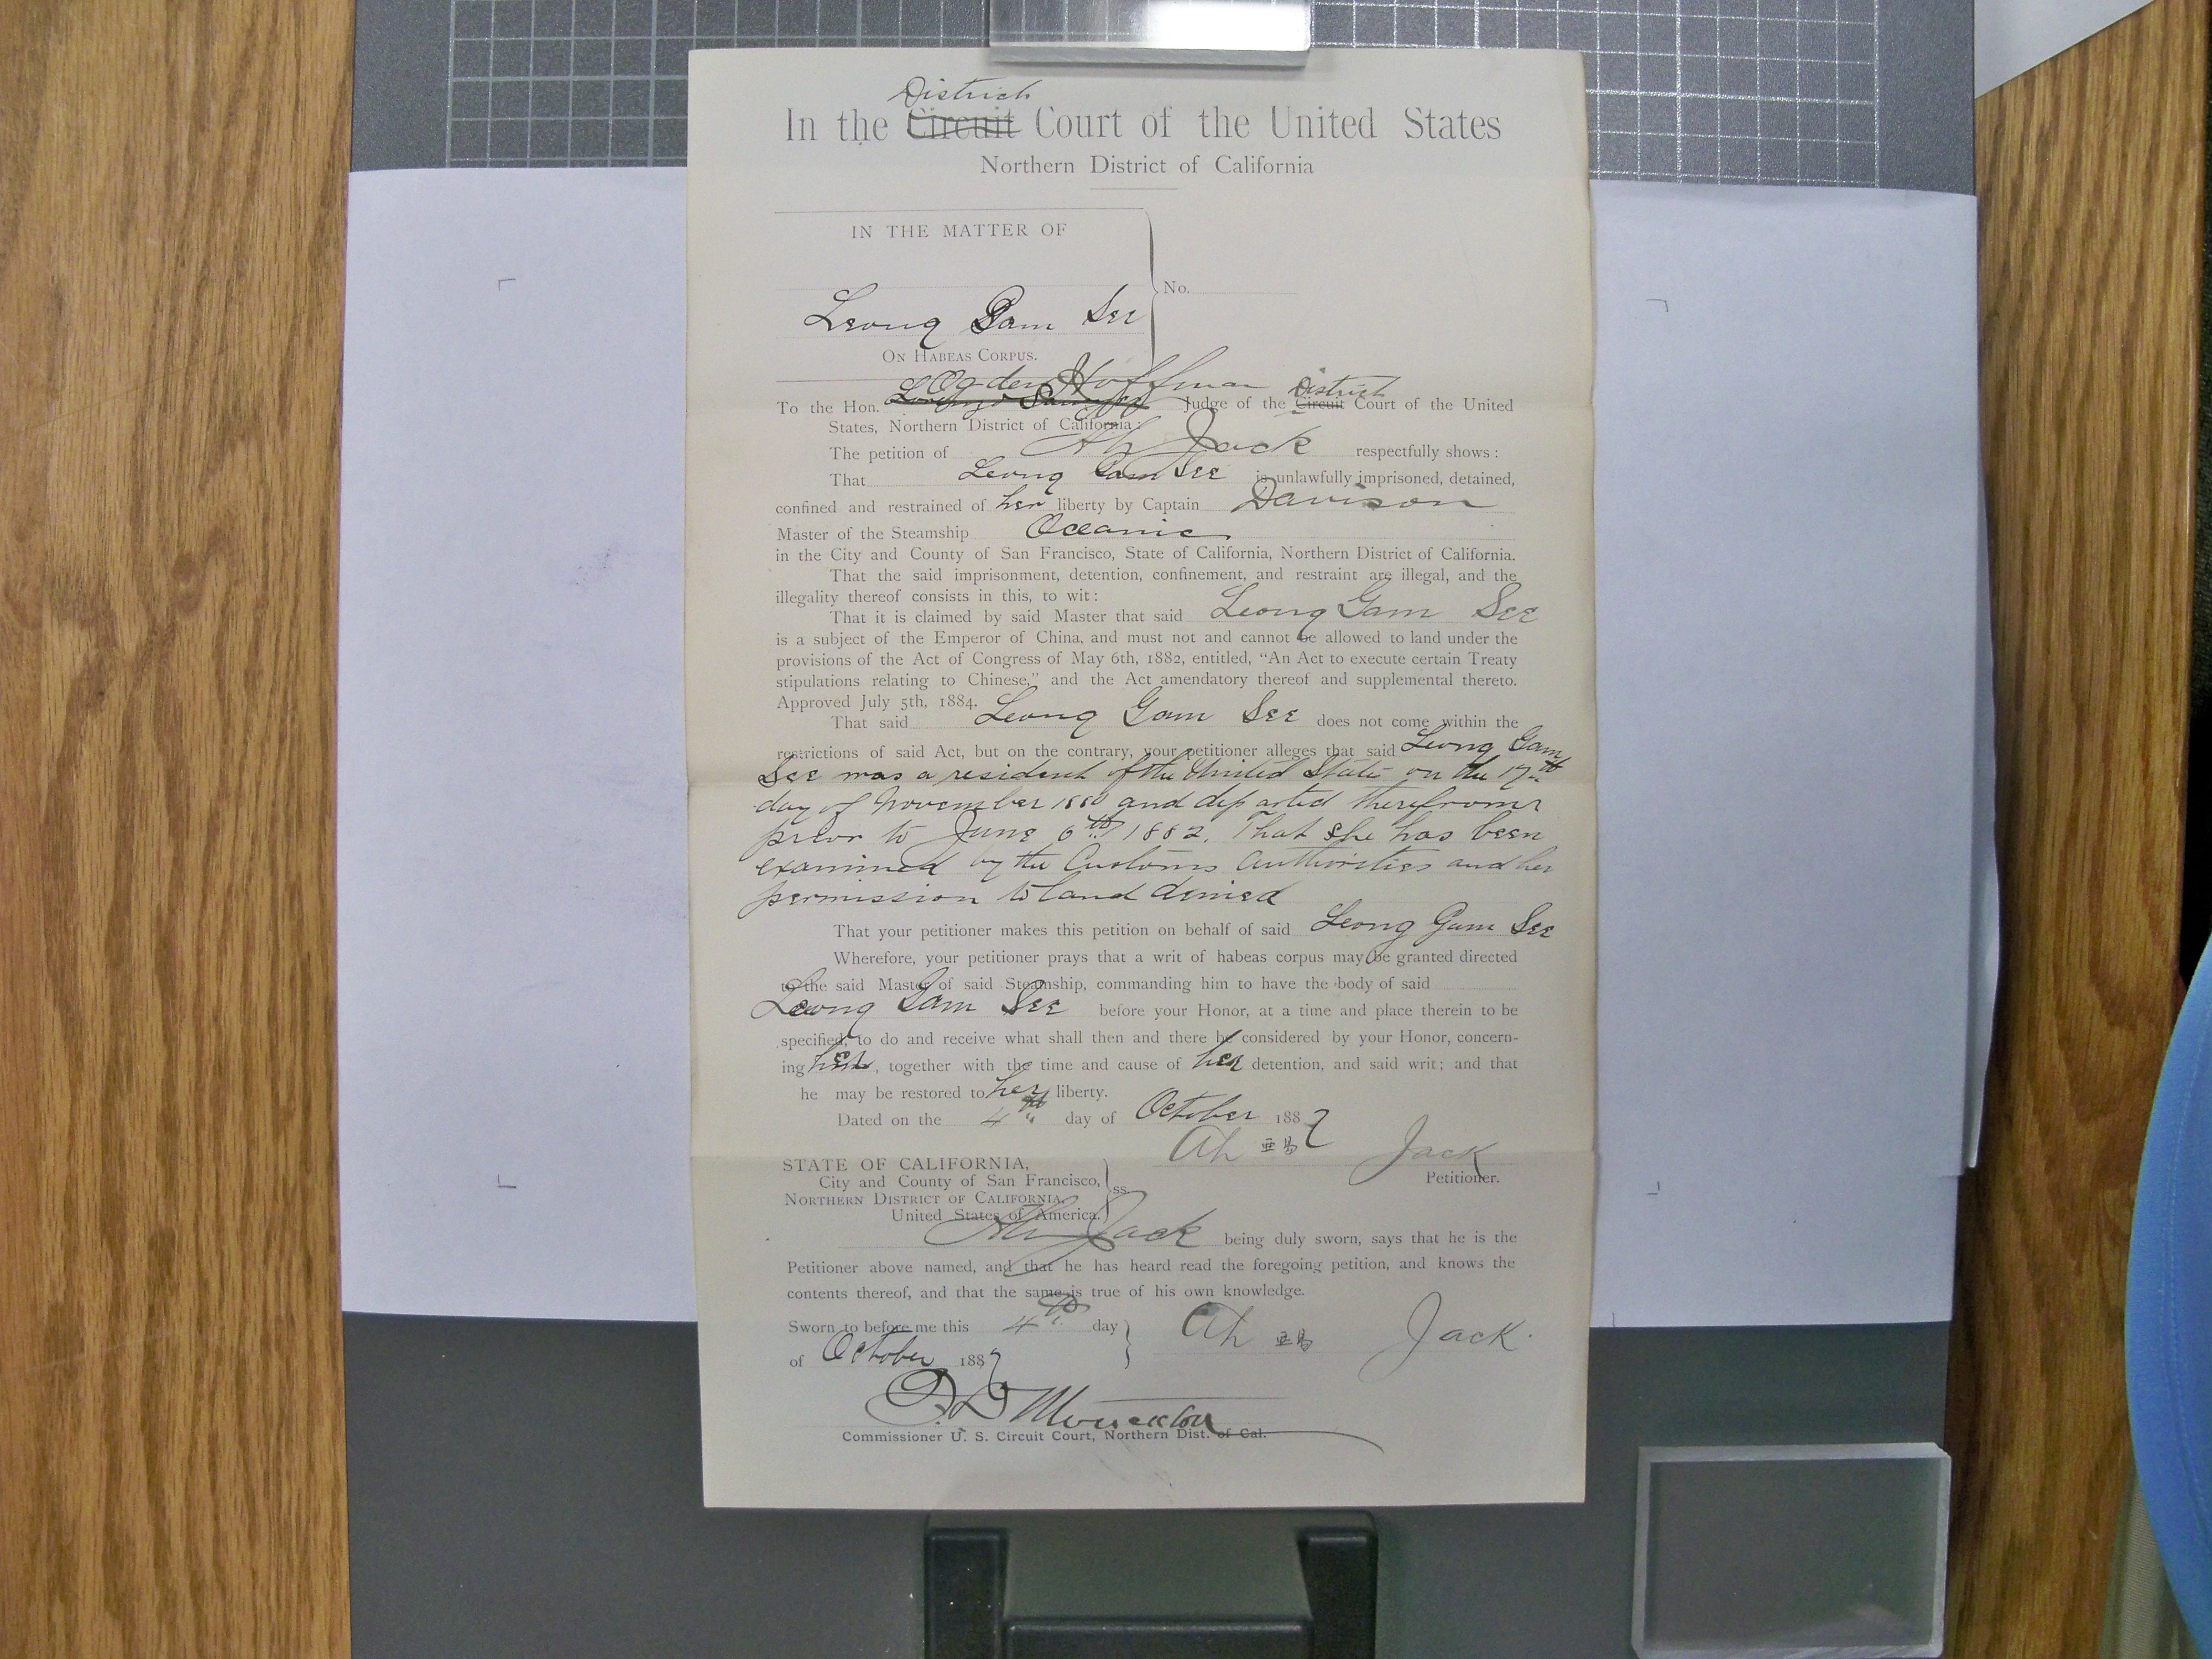 District
In the Circuit Court of the United States
Northern District of California
IN THE MATTER OF
Leong Gam See
No.
ON HABEAS CORPUS.
Ogden Hoffman District
To the Hon. Lorenzo Sawyer Judge of the Circuit Court of the United
States, Northern District of California:
The petition of Ah Jack respectfully shows:
That Leong Gam See is unlawfully imprisoned, detained,
confined and restrained of her liberty by Captain Davison
Master of the Steamship Oceanic
in the City and County of San Francisco, State of California, Northern District of California.
That the said imprisonment, detention, confinement, and restraint are illegal, and the
illegality thereof consists in this, to wit:
That it is claimed by said Master that said Leong Gam See
is a subject of the Emperor of China, and must not and cannot be allowed to land under the
provisions of the Act of Congress of May 6th, 1882, entitled, "An Act to execute certain Treaty
stipulations relating to Chinese," and the Act amendatory thereof and supplemental thereto.
Approved July 5th, 1884.
That said Leong Gam See does not come within the
restrictions of said Act, but on the contrary, your petitioner alleges that said Leong Gam
See was a resident of the United States on the 17th
day of November 1880 and departed therefrom
prior to June 6th 1882. That she has been
examined by the Customs Authorities and her
permission to land denied
That your petitioner makes this petition on behalf of said Leong Gam See
Wherefore, your petitioner prays that a writ of habeas corpus may be granted directed
to the said Master of said Steamship, commanding him to have the body of said
Leong Gam See before your Honor, at a time and place therein to be
specified, to do and receive what shall then and there be considered by your Honor, concern-
ing her, together with the time and cause of her detention, and said writ; and that
he may be restored to her liberty.
Dated on the 4th day of October 1887
Ah Jack
Petitioner.
STATE OF CALIFORNIA,
City and County of San Francisco,
NORTHERN DISTRICT OF CALIFORNIA,
United States of America.
ss.
Ah Jack being duly sworn, says that he is the
Petitioner above named, and that he has heard read the foregoing petition, and knows the
contents thereof, and that the same is true of his own knowledge.
Sworn to before me this 4th day
of October 1887
Ah Jack.
Commissioner U. S. Circuit Court, Northern Dist. of Cal.